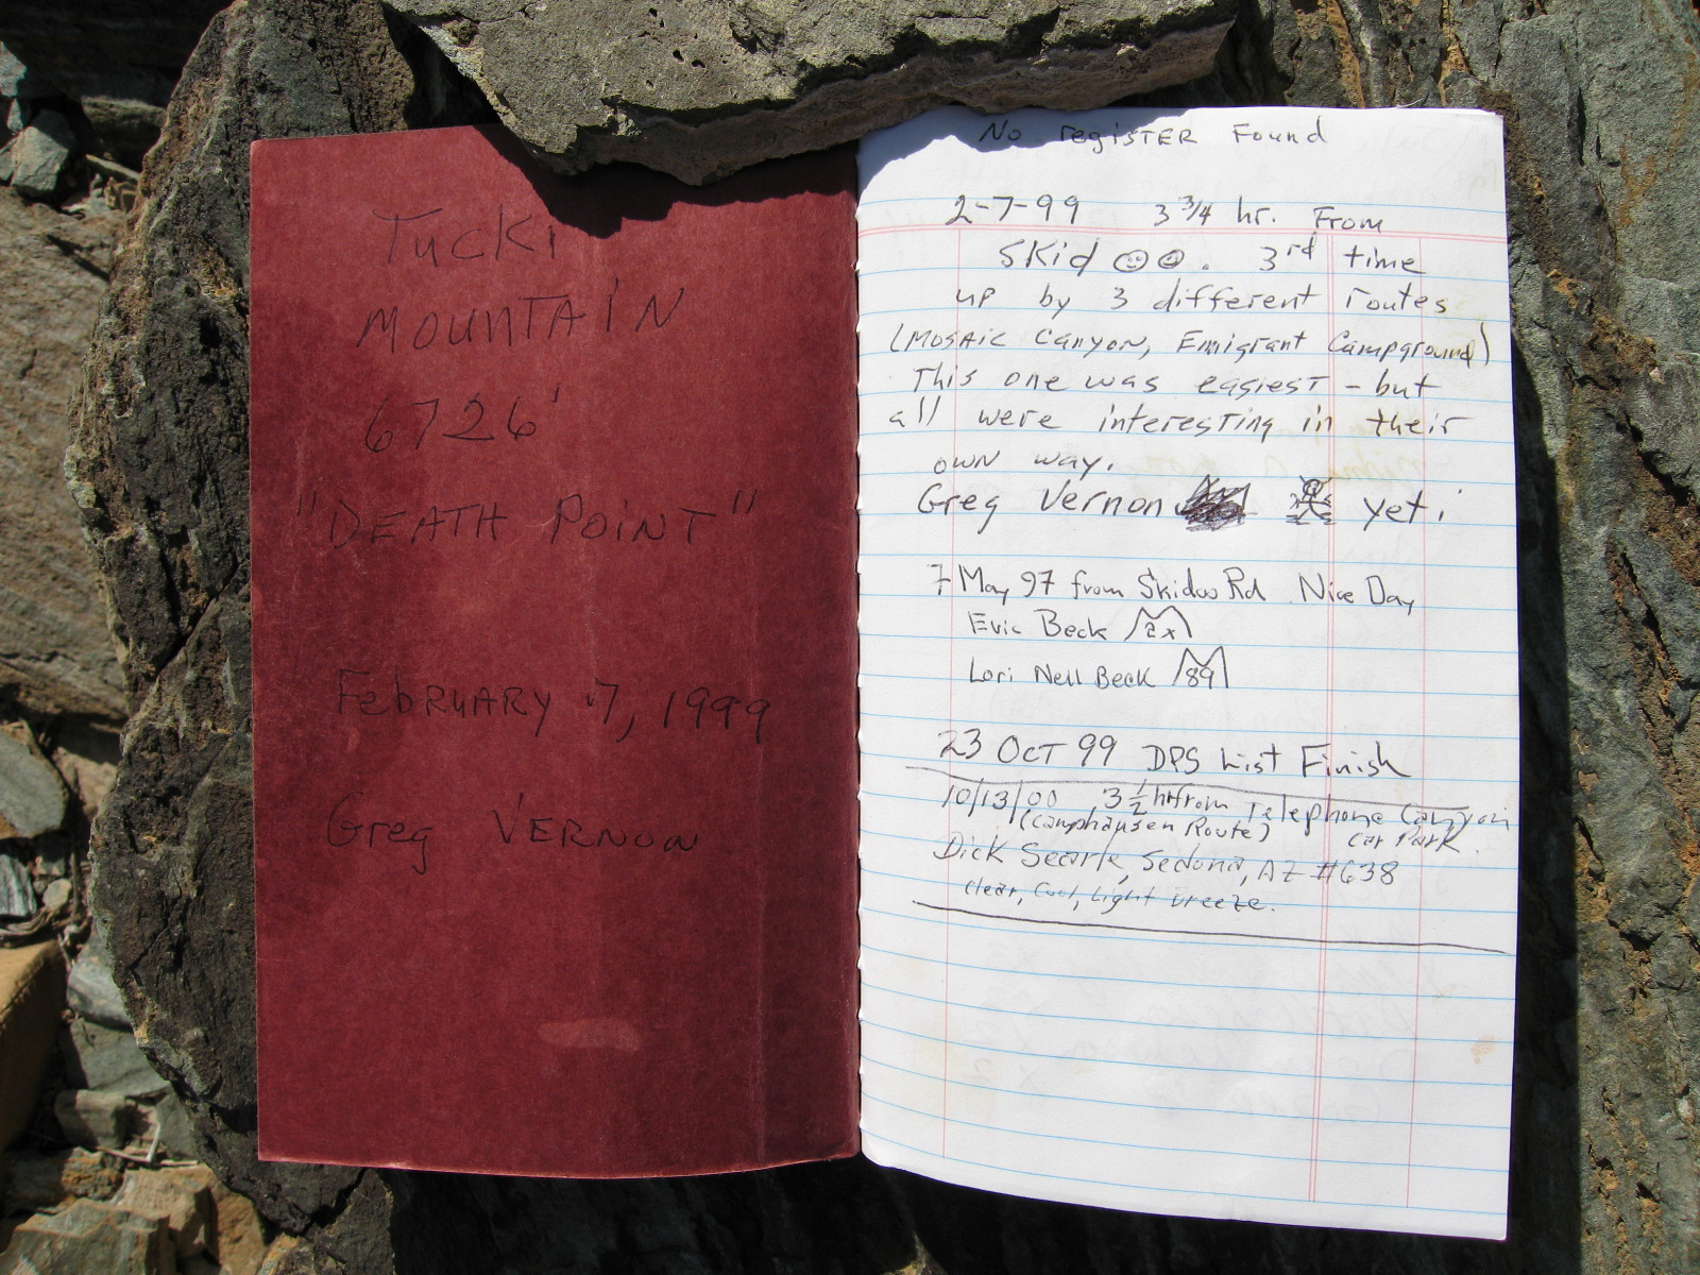 Tucki
MOUNTAIN
6726'
"DEATH POINT"
FebRUARY 7, 1999
Greg VERNON
No regISTER Found
2-7-99 3 3/4 hr. From
Skid ☺☺. 3rd time
up by 3 different routes
(MosAic Canyon, Emigrant Campground)
This one was easiest - but
all were interesting in their
own way.
Greg Vernon yet!
7 May 97 from Skidoo Rd Nice Day
Eric Beck 2x
Lori Nell Beck 89
23 OCT 99 DPS List Finish
10/13/00 3 1/2 hr from Telephone Canyon
(Camphausen Route) car Park.
Dick Searle, Sedona, AZ #638
Clear, Cool, Light breeze.